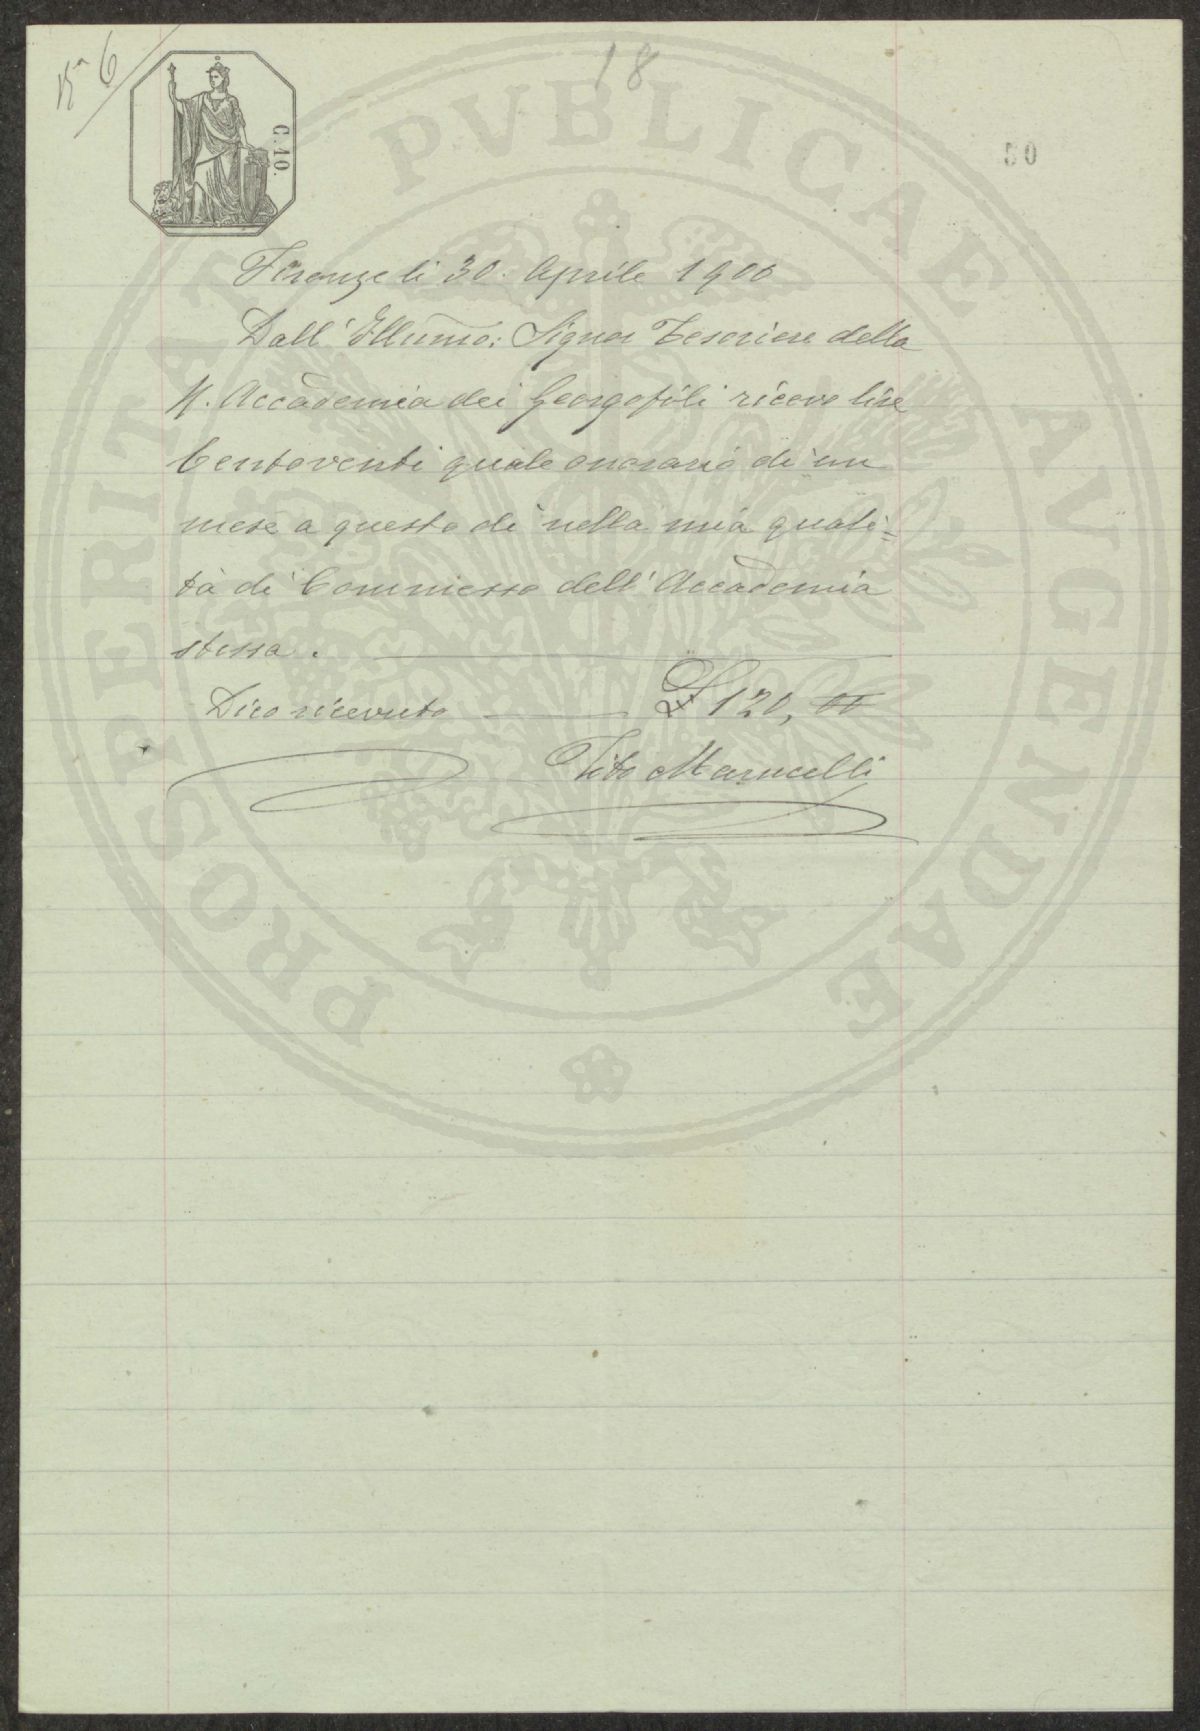 N° 6
18
C. 10.
50
Firenze li 30. Aprile 1900
Dall' Illumo: Signor Tesoriere della
R. Accademia dei Georgofili ricevo lire
Centoventi quale onorario di un
mese a questo dì nella mia quali=
tà di Commesso dell' Accademia
stessa.
Dico ricevuto £ 120, 00
Tito Marucelli
PROSPERITATI PVBLICAE AVGENDAE